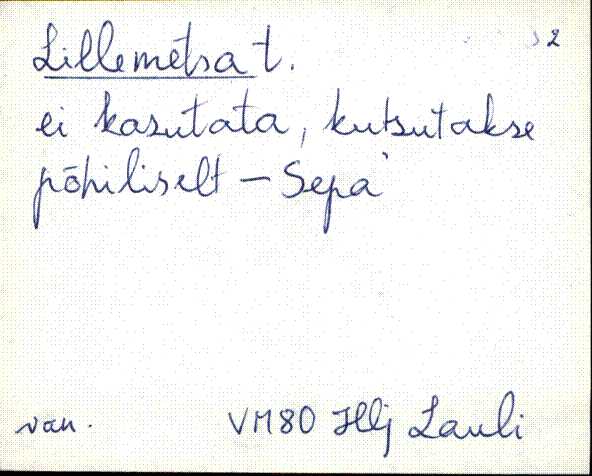 2
Lillemetsa t.
ei kasutata, kutsutakse
põhiliselt – Sepa
van. VM80 Hlj Lauli